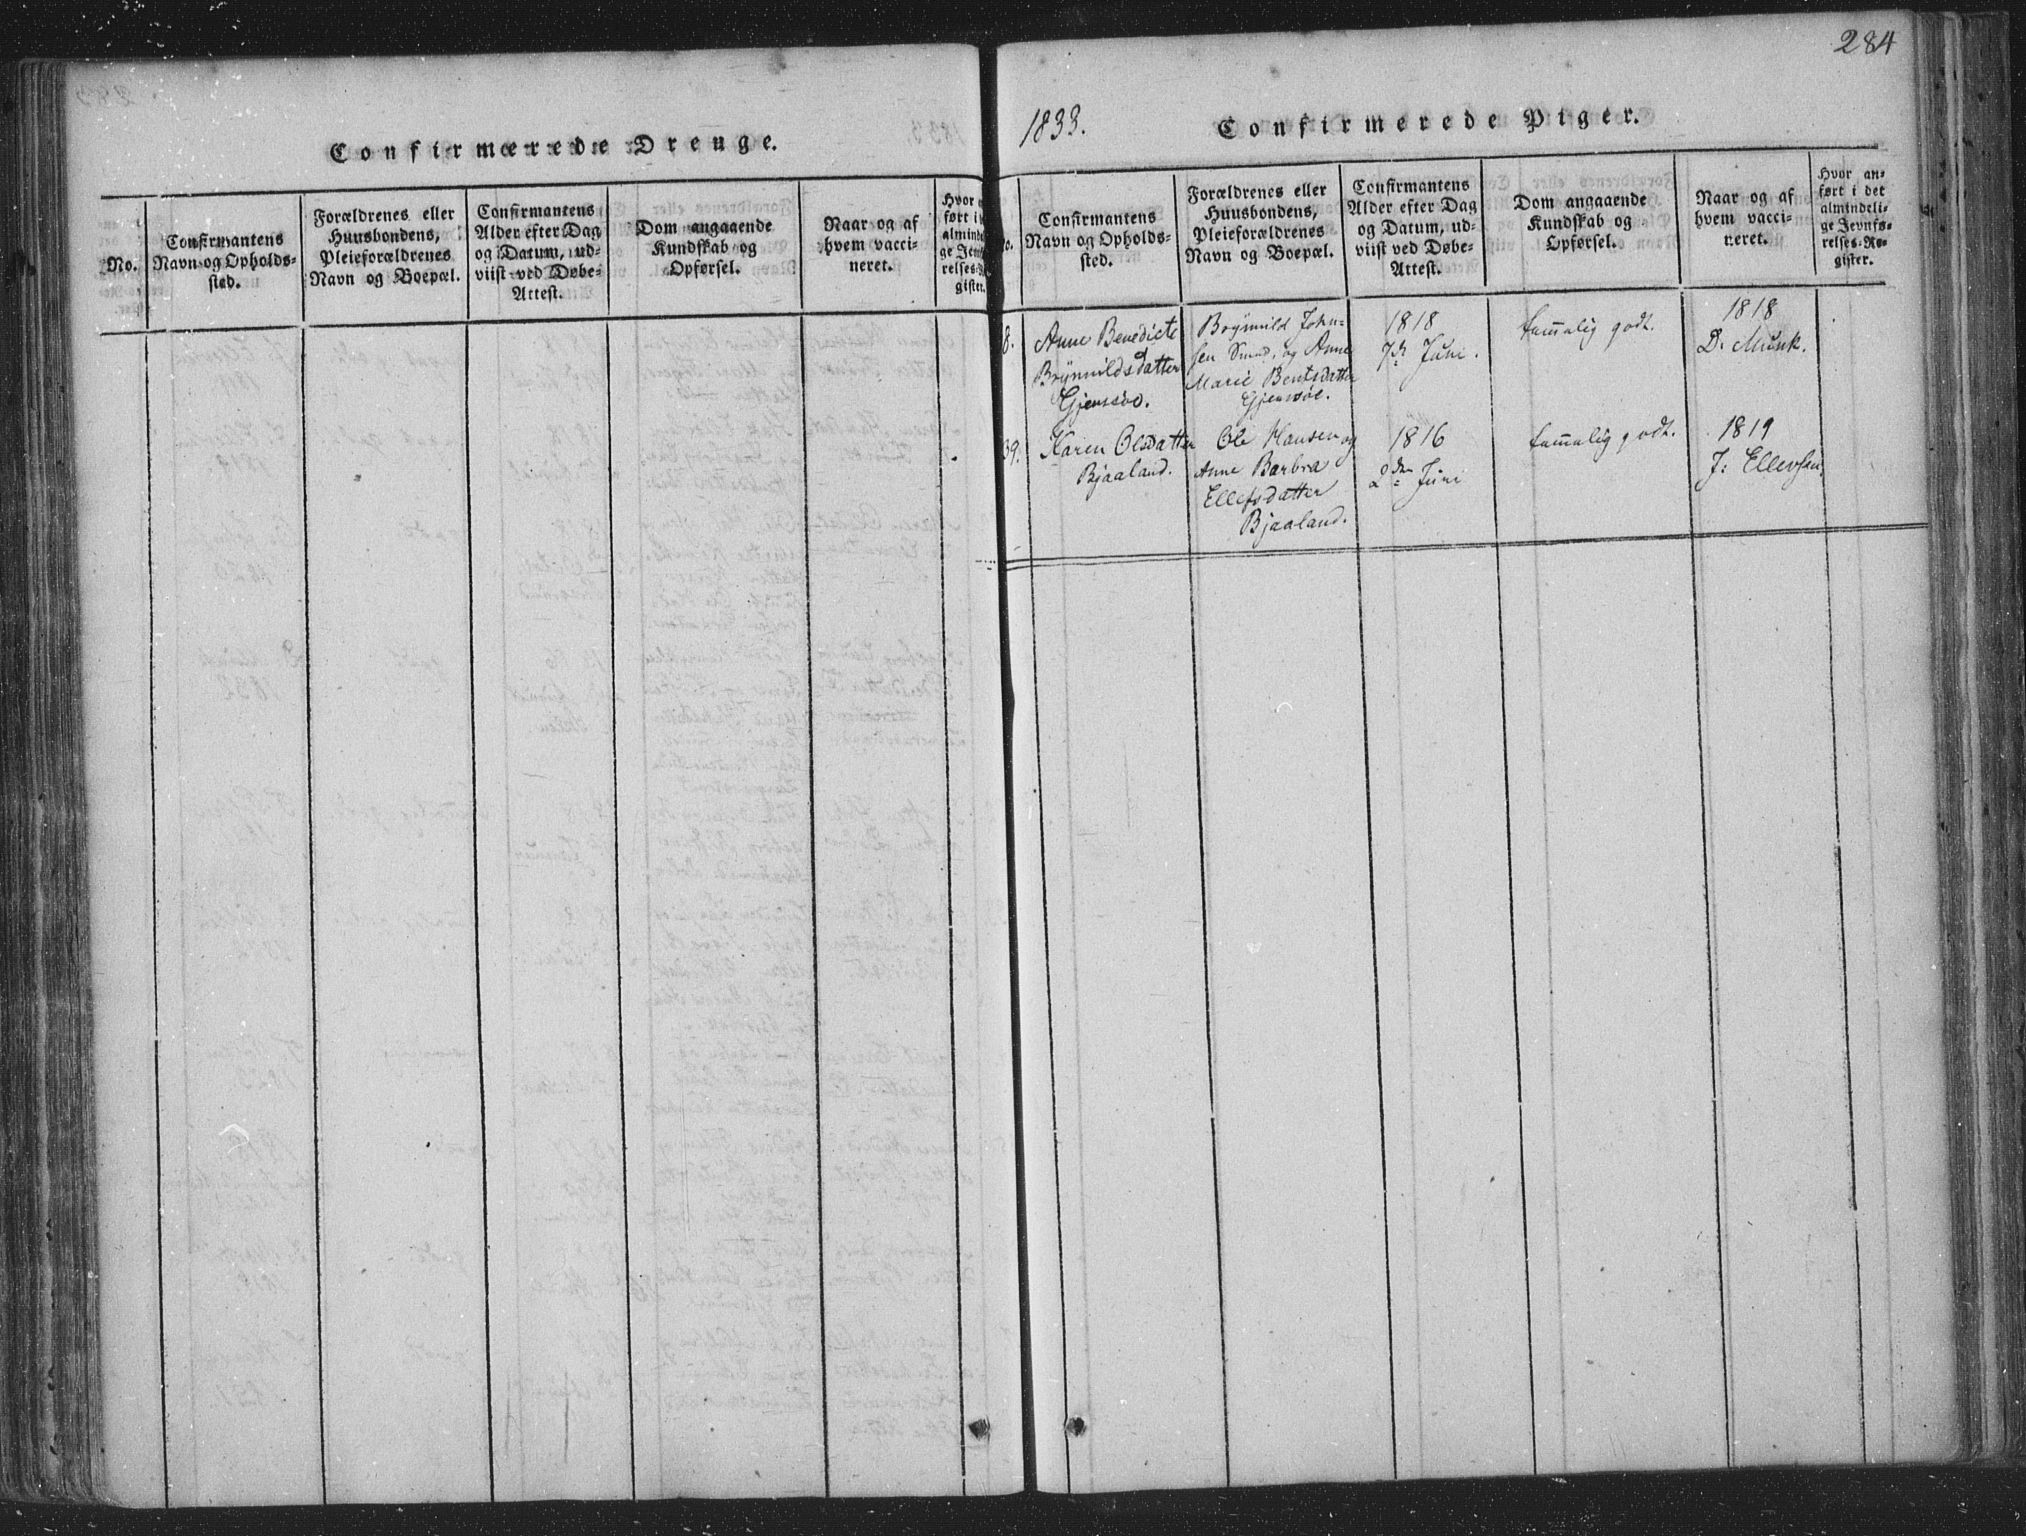 284
Confirmerede Drenge.
No.
Confirmantens
Navn og Opholds-
sted.
Forældrenes eller
Huusbondens,
Pleieforældrenes
Navn og Boepæl.
Confirmantens
Alder efter Dag
og Datum, ud-
viist ved Døbe-
Attest.
Dom angaaende
Kundskab og
Opførsel.
Naar og af
hvem vacci-
neret.
Hvor
ført i
alminde
ge Jevn
relses-
gister.
1833.
Confirmerede Piger.
No.
Confirmantens
Navn og Opholds-
sted.
Forældrenes eller
Huusbondens,
Pleieforældrenes
Navn og Boepæl.
Confirmantens
Alder efter Dag
og Datum, ud-
viist ved Døbe-
Attest.
Dom angaaende
Kundskab og
Opførsel.
Naar og af
hvem vacci-
neret.
Hvor an-
ført i det
almindeli-
ge Jevnfø-
relses-Re-
gister.
8.
Anne Benedicte
Brynnildsdatter
Gjenssøe.
Brynnild John-
sen Smed, og Anne
Marie Bentsdatter
Gjenssøe.
1818
7de Juni.
temmelig godt.
1818
D. Munk.
39.
Karen Olsdatter
Bjaaland.
Ole Hansen og
Anne Barbra
Ellefsdatter
Bjaaland.
1816
2den Juni
temmelig godt.
1819
J: Ellevsen,